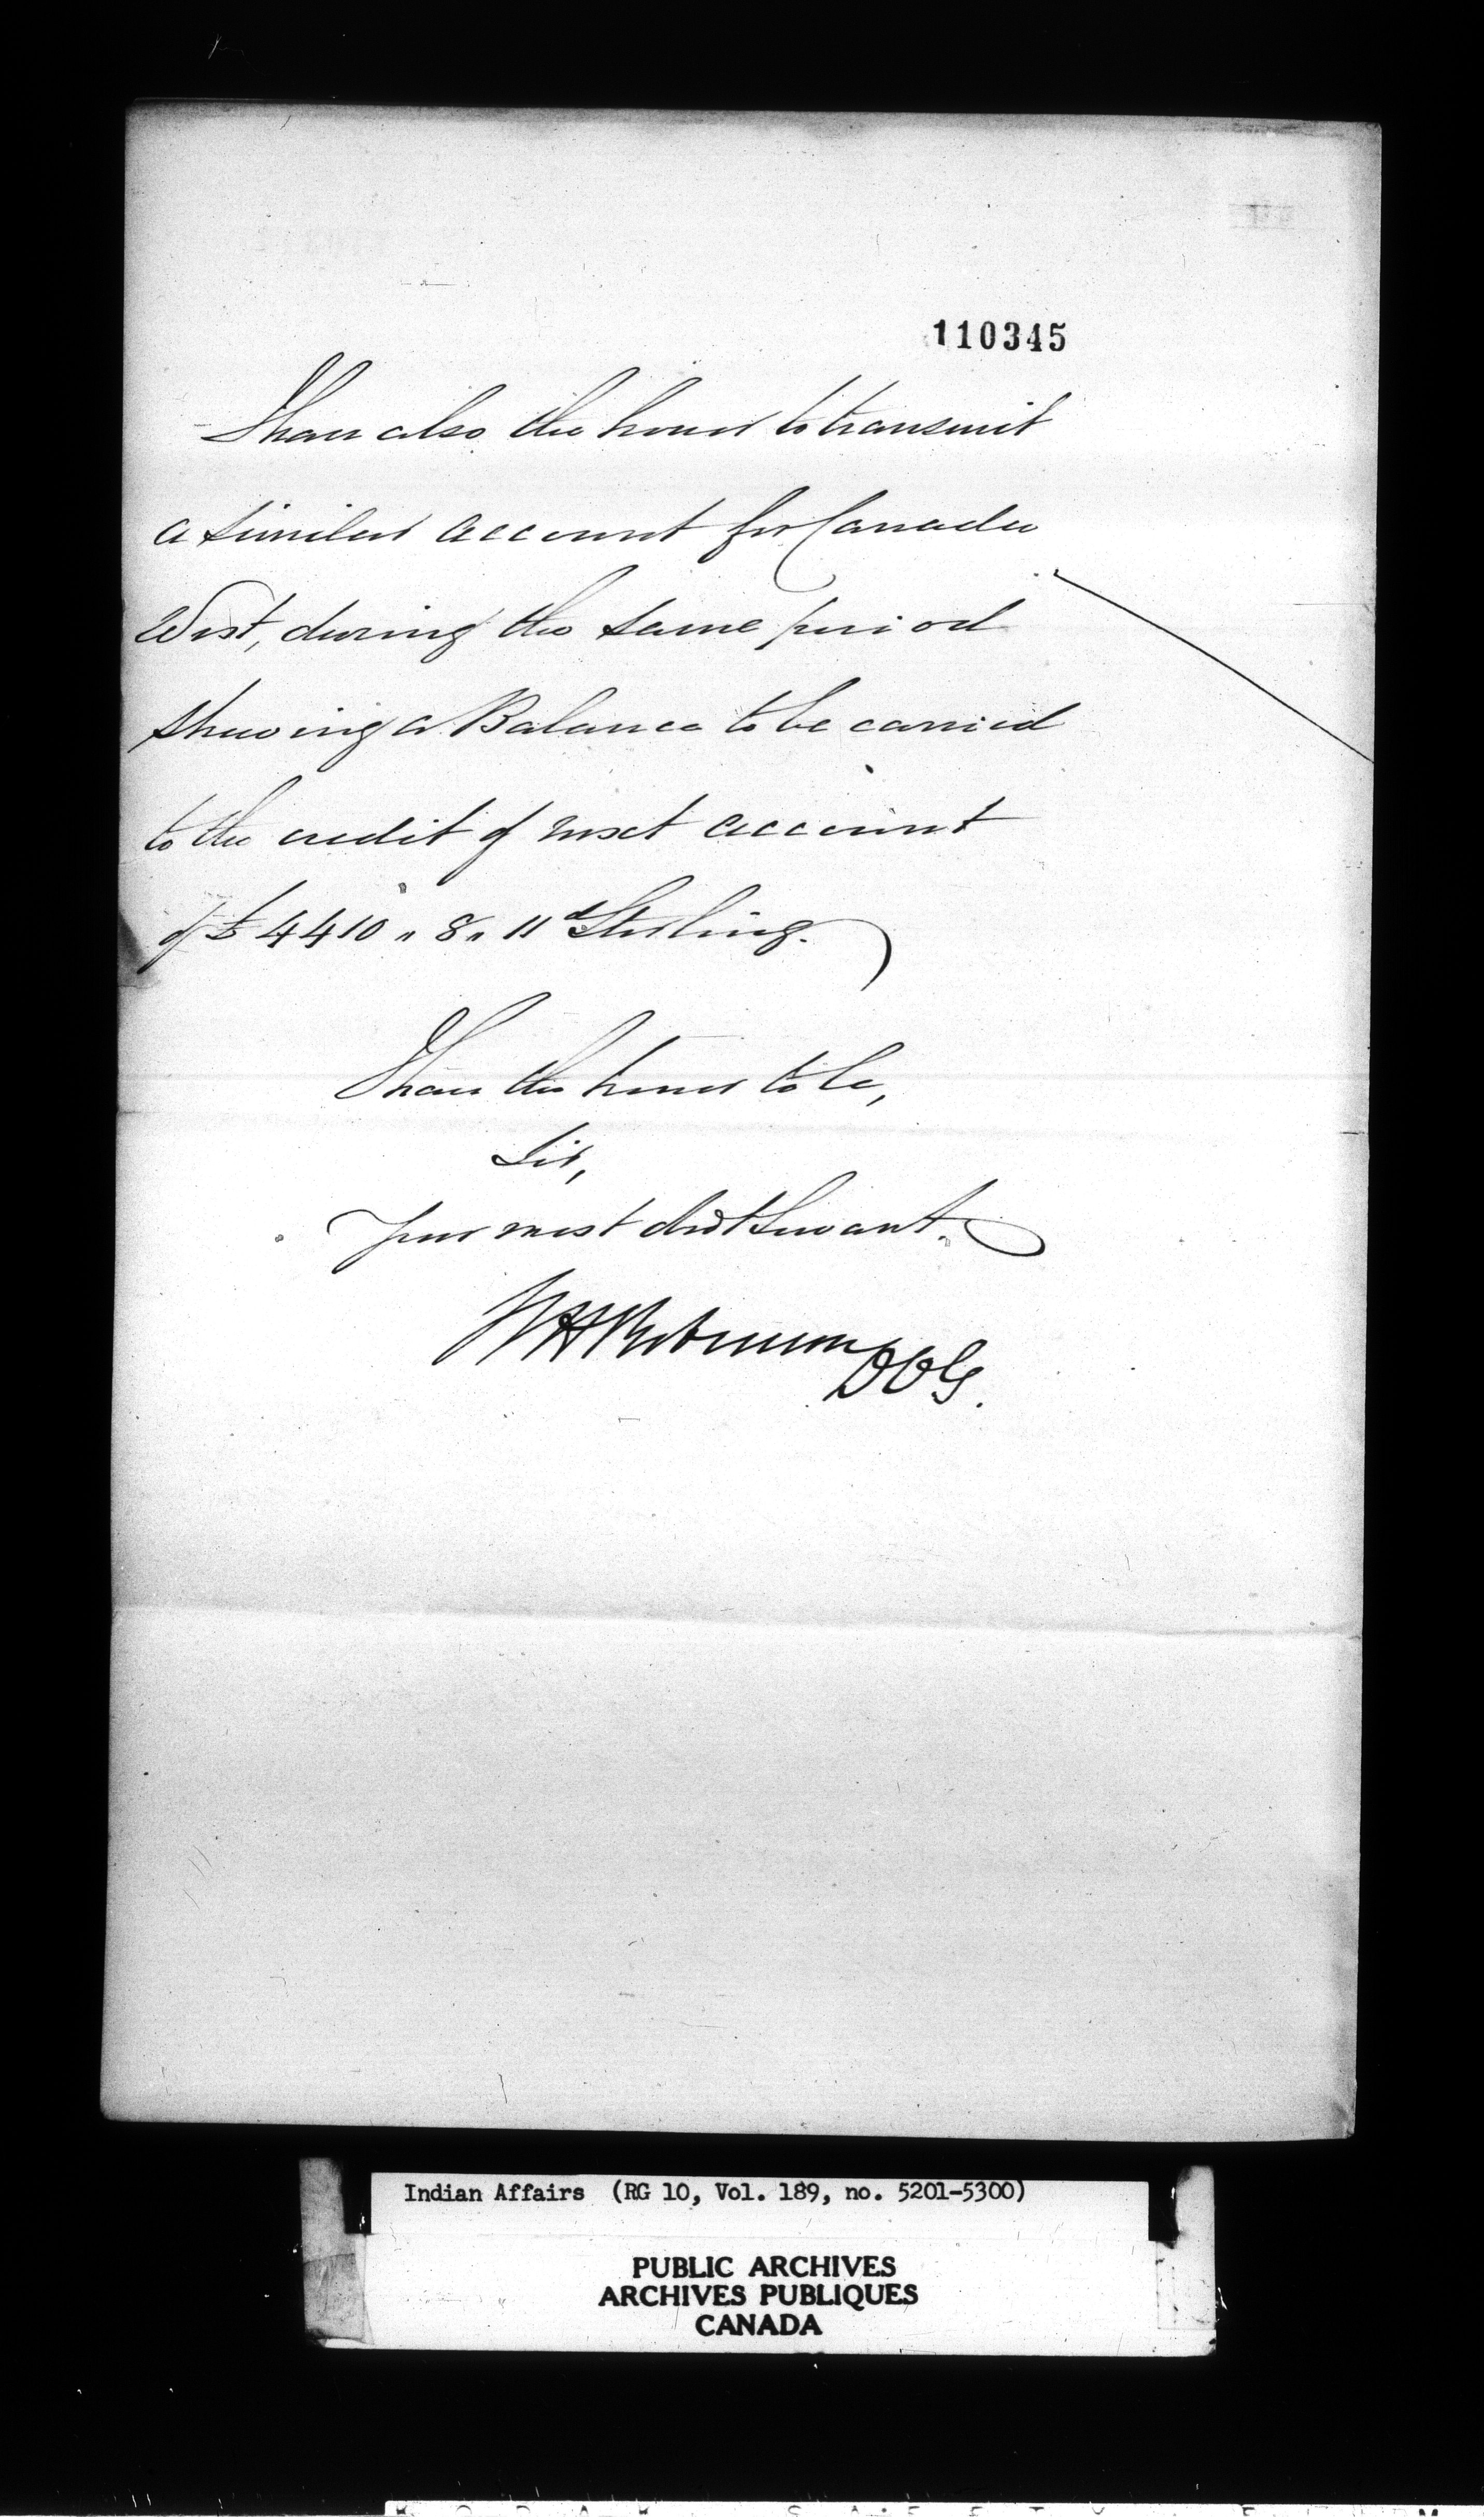 110345
I have also the honor to transmit
a similar account for Canada
West, during the same period
shewing a Balance to be carried
to the credit of next account
of £4410 " 8 " 11d Sterling.
I have the honor to be,
Sir,
Your most obdt Servant.
WH Robinson
DCG.
Indian Affairs (RG 10, Vol. 189, no. 5201-5300)
PUBLIC ARCHIVES
ARCHIVES PUBLIQUES
CANADA